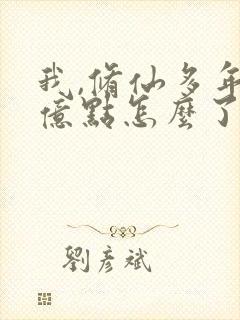 我,脩仙多年
億點怎麼了
劉彥斌